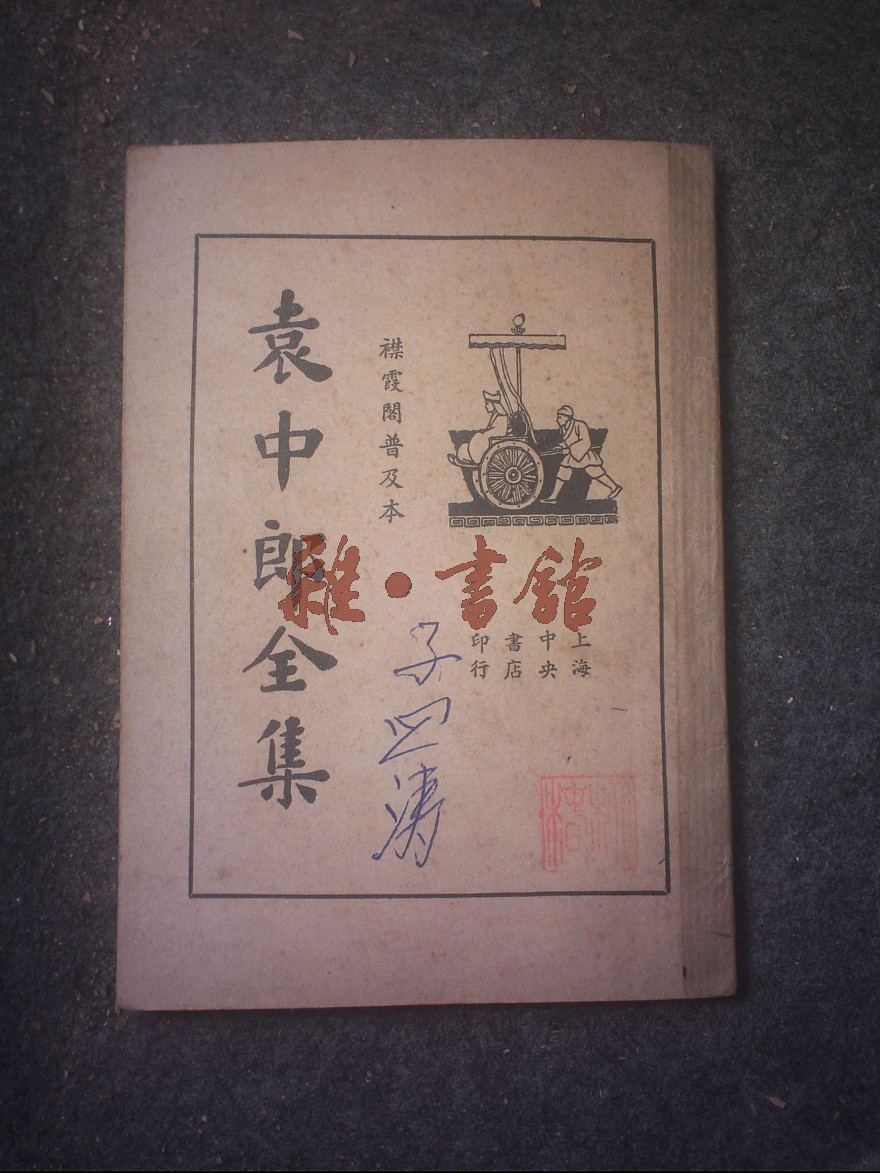 袁中郎全集
襟霞閣普及本
上海
中央
書店
印行
雜·書館